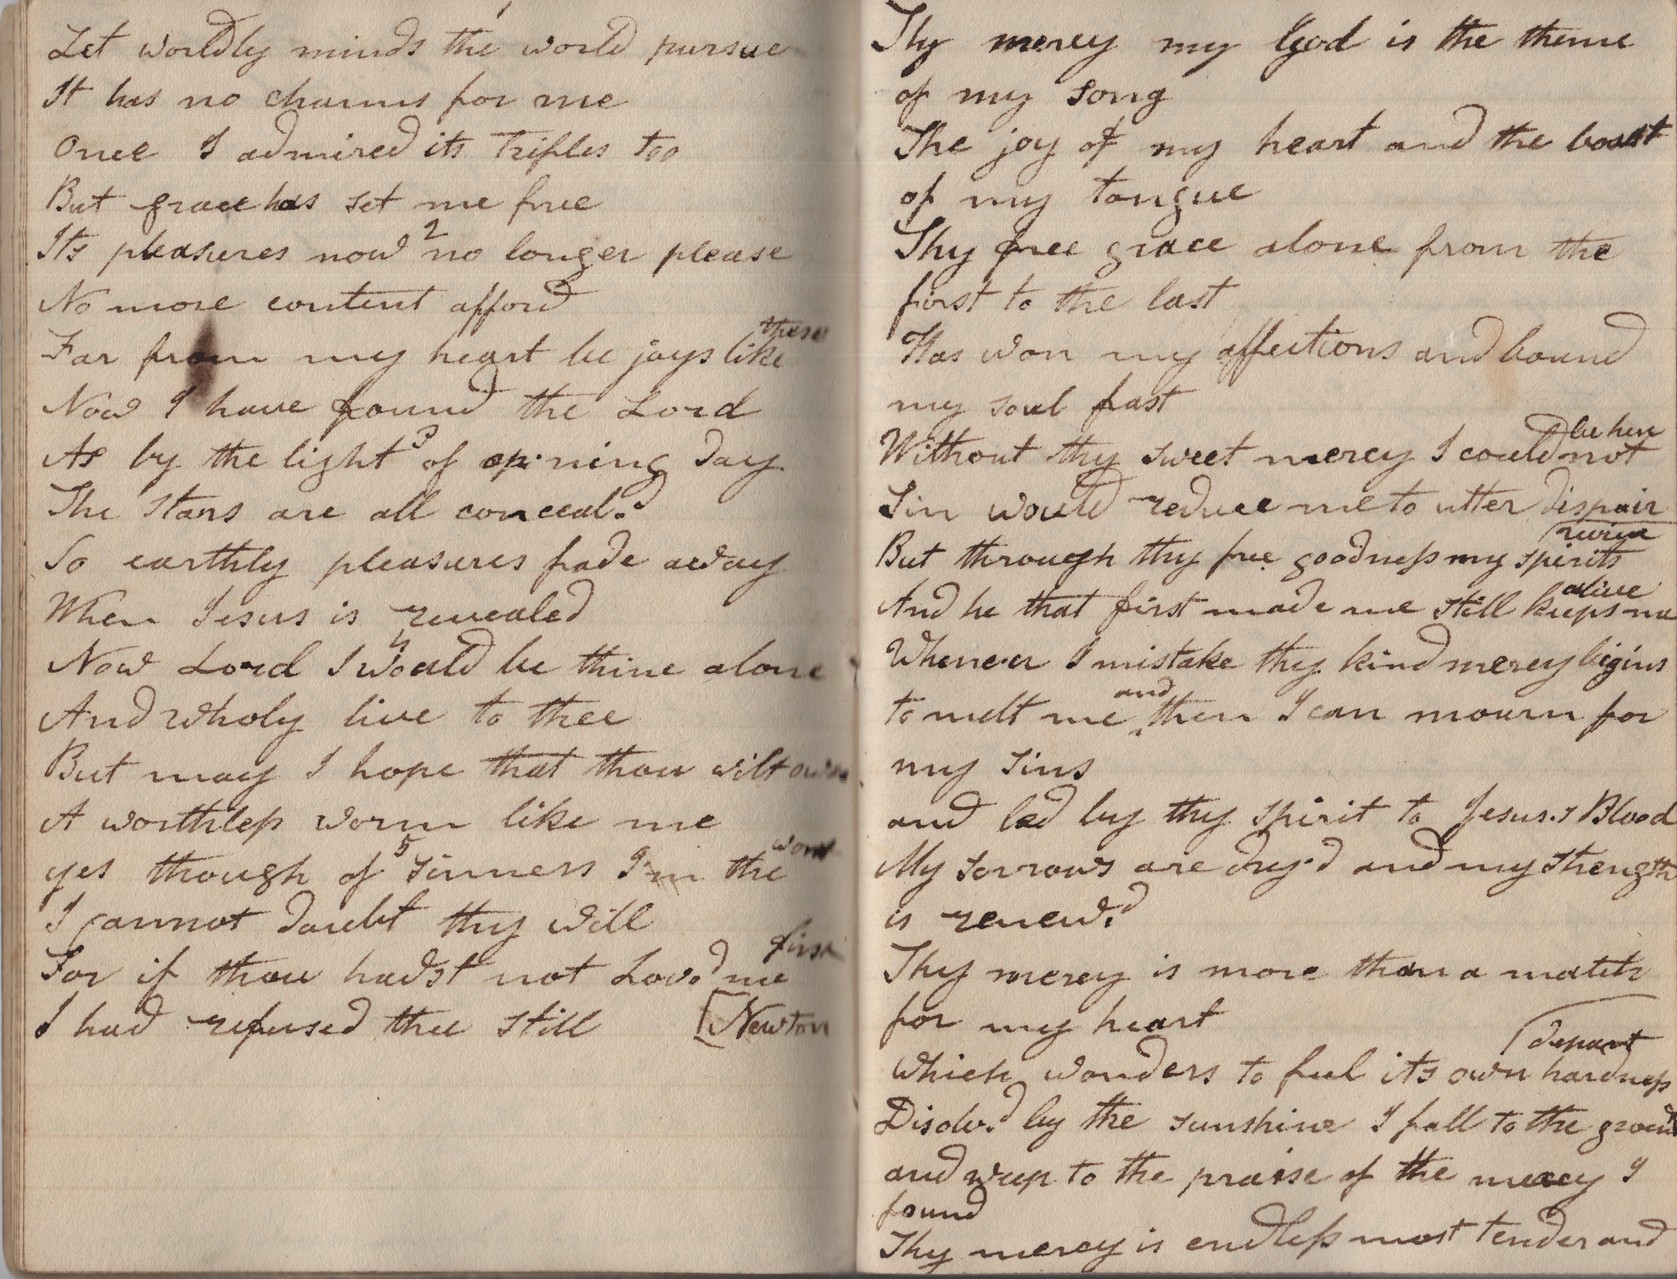 1
Let worldly minds the world pursue
It has no charms for me
Once I admired its trifles too
But grace has set me free
2
Its pleasures now no longer please
No more content afford
Far from my heart be joys like these
Now I have found the Lord
3
As by the light of op'ning day
The stars are all conceal.d
So earthly pleasures fade away
When Jesus is revealed
4
Now Lord I would be thine alone
And wholy live to thee
But may I hope that thou wilt own
A worthless worm like me
5
yes though of sinners I'm the worst
I cannot doubt thy will
For if thou hadst not Lov.d me first
I had refused thee still [Newton
Thy mercy my God is the theme
of my song
The joy of my heart and the boast
of my tongue
Thy free grace alone from the
first to the last
Has won my affections and bound
my soul fast
Without thy sweet mercy I could not be here
Sin would reduce me to utter dispair
But through thy free goodness my spirits revive
And he that first made me still keeps me alive
Whene.er I mistake thy kind mercy begins
to melt me and then I can mourn for
my sins
and led by thy spirit to Jesus.s Blood
My sorrows are dry.d and my strength
is renew.d
Thy mercy is more than a match
for my heart
which wonders to feel its own hardness depart
Disolv.d by the sunshine I fall to the ground
and weep to the praise of the mercy I
found
Thy mercy is endless most tender and